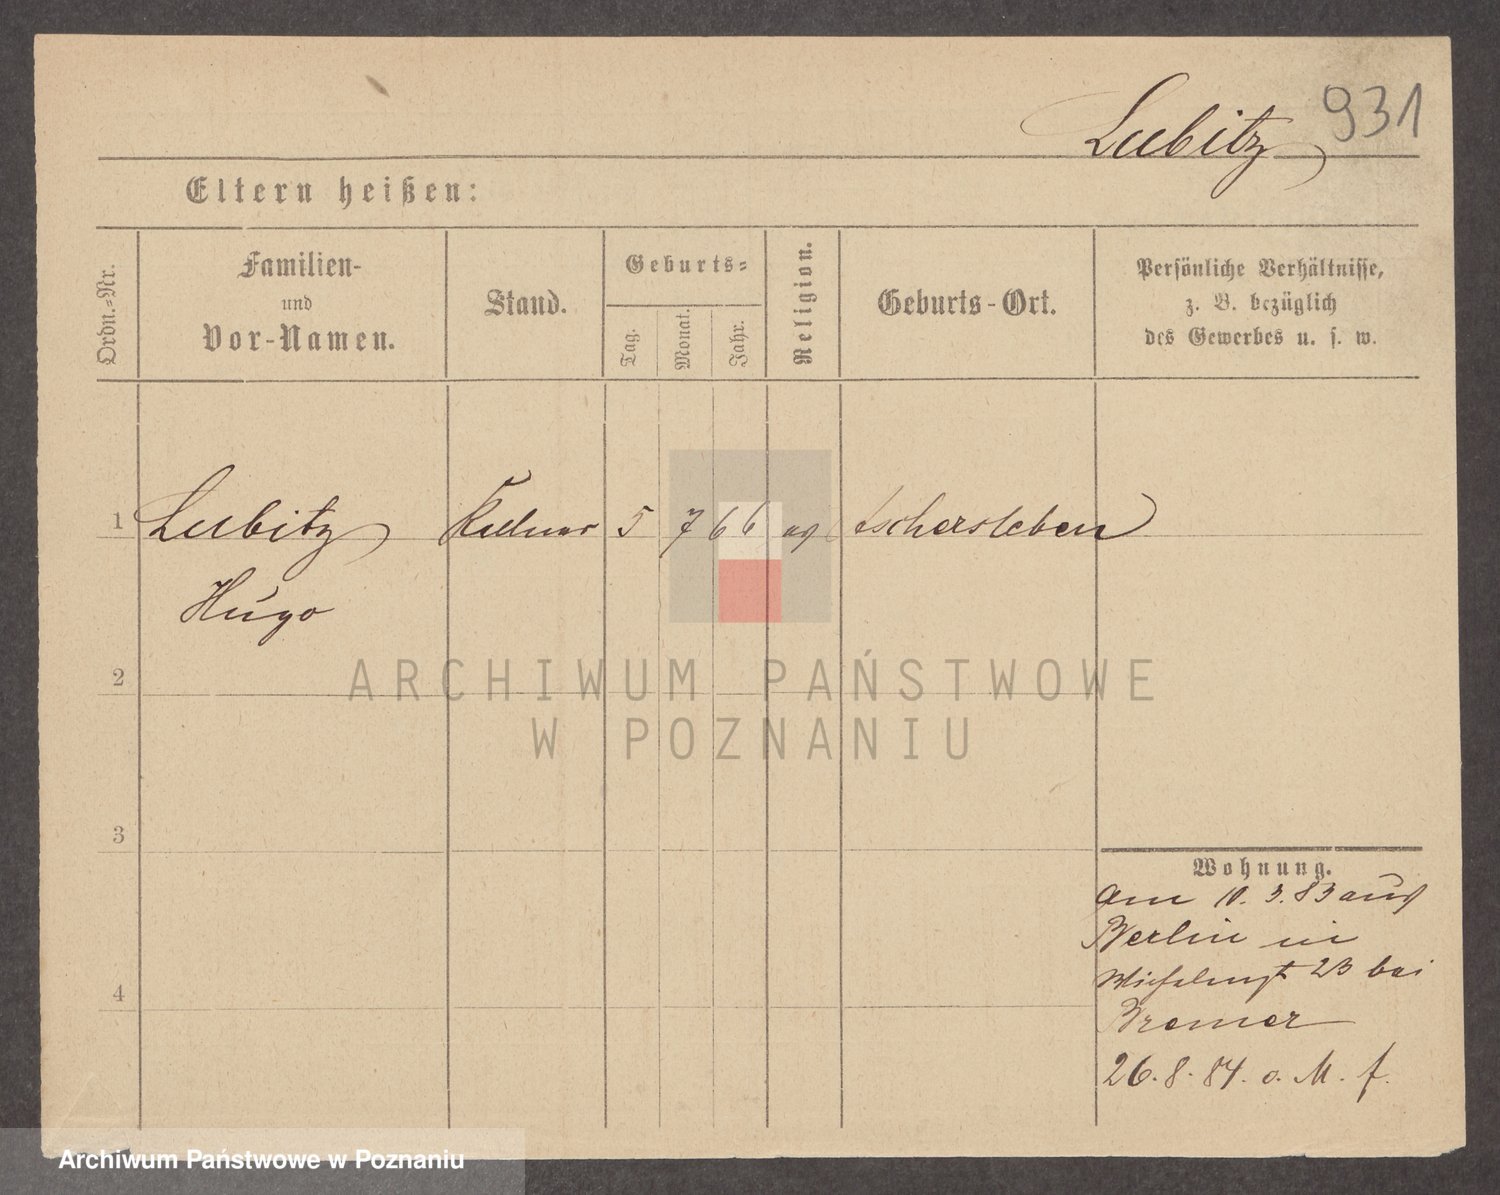 Lubitz 931
Eltern heißen:
Ordn.=Nr.
Familien-
und
Vor-Namen.
Stand.
Geburts=
Tag.
Monat.
Jahr.
Religion.
Geburts-Ort.
Persönliche Verhältnisse,
z. B. bezüglich
des Gewerbes u. s. w.
1 Lubitz Kellner 5 7 66 ev Aschersleben
Hugo
2
3
4
Wohnung.
Am 10. 3. 83 aus
Berlin in
23 bei
Bremer
26. 8. 84. o. M. f.
ARCHIWUM PAŃSTWOWE
W POZNANIU
Archiwum Państwowe w Poznaniu